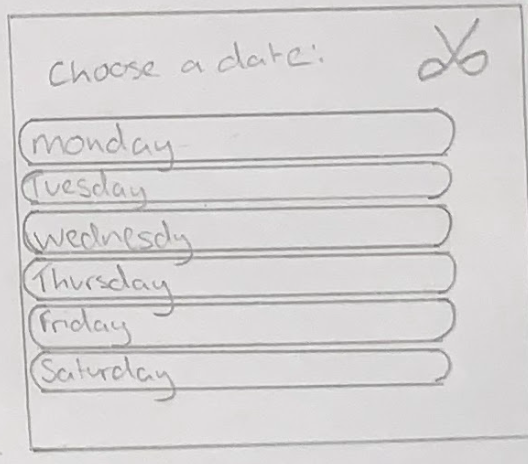 Choose a date:
monday
Tuesday
wednesdy
Thursday
Friday
Saturday